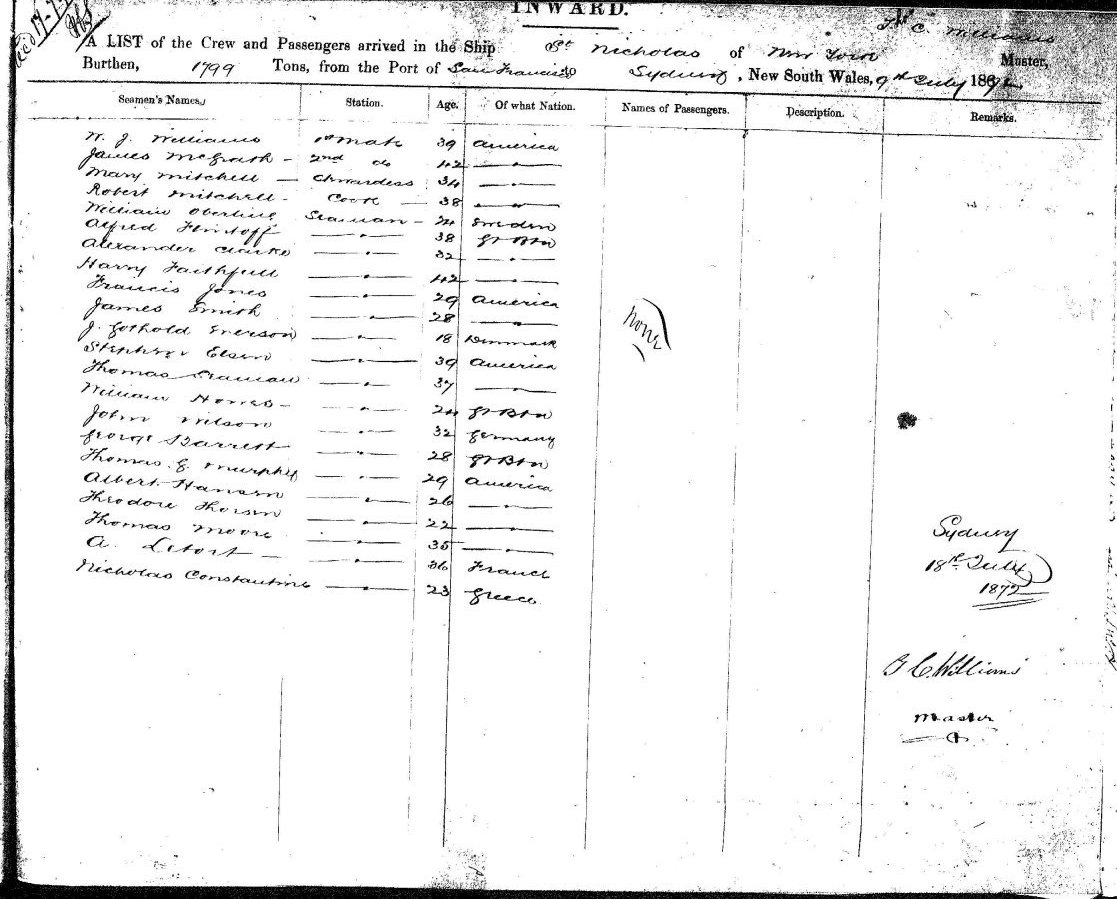 INWARD.
Recd 17-7-
Ths C. Williams
A LIST of the Crew and Passengers arrived in the Ship St Nicholas of New York Master,
Burthen, 1799 Tons, from the Port of San Francisco to Sydney, New South Wales, 9th July 1872
Seamen's Names. Station. Age. Of what Nation. Names of Passengers. Description. Remarks.
W. J. Williams 1st Mate 39 America
James McGrath - 2nd do 42 — " —
Mary Mitchell — Stewardess 34 — " —
Robert Mitchell - Cook — 38 — " —
William Oberling Seaman - 24 Sweden
Alfred Flintoff — " — 38 Gt Btn
Alexander Clarke — " — 32 — " —
Harry Faithfull — " — 42 — " —
Francis Jones — " — 29 America
James Smith — " — 28 — " —
none
J. Gothold Enerson — " — 18 Denmark
Elsen — " — 39 America
Thomas Seaman — " — 37 — " —
William Homes - — " — 24 Gt Btn
John Wilson — " — 32 Germany
George Barrett — " — 28 Gt Btn
Thomas G. Murphy — " — 29 America
Albert Hansen — " — 26 — " —
Theodore Thorsen — " — 22 — " —
Thomas Moore — " — 35 — " —
A. Letort — — " — 36 France
Nicholas Constantine — " — 23 Greece
Sydney
18th July
1872
T C. Williams
Master